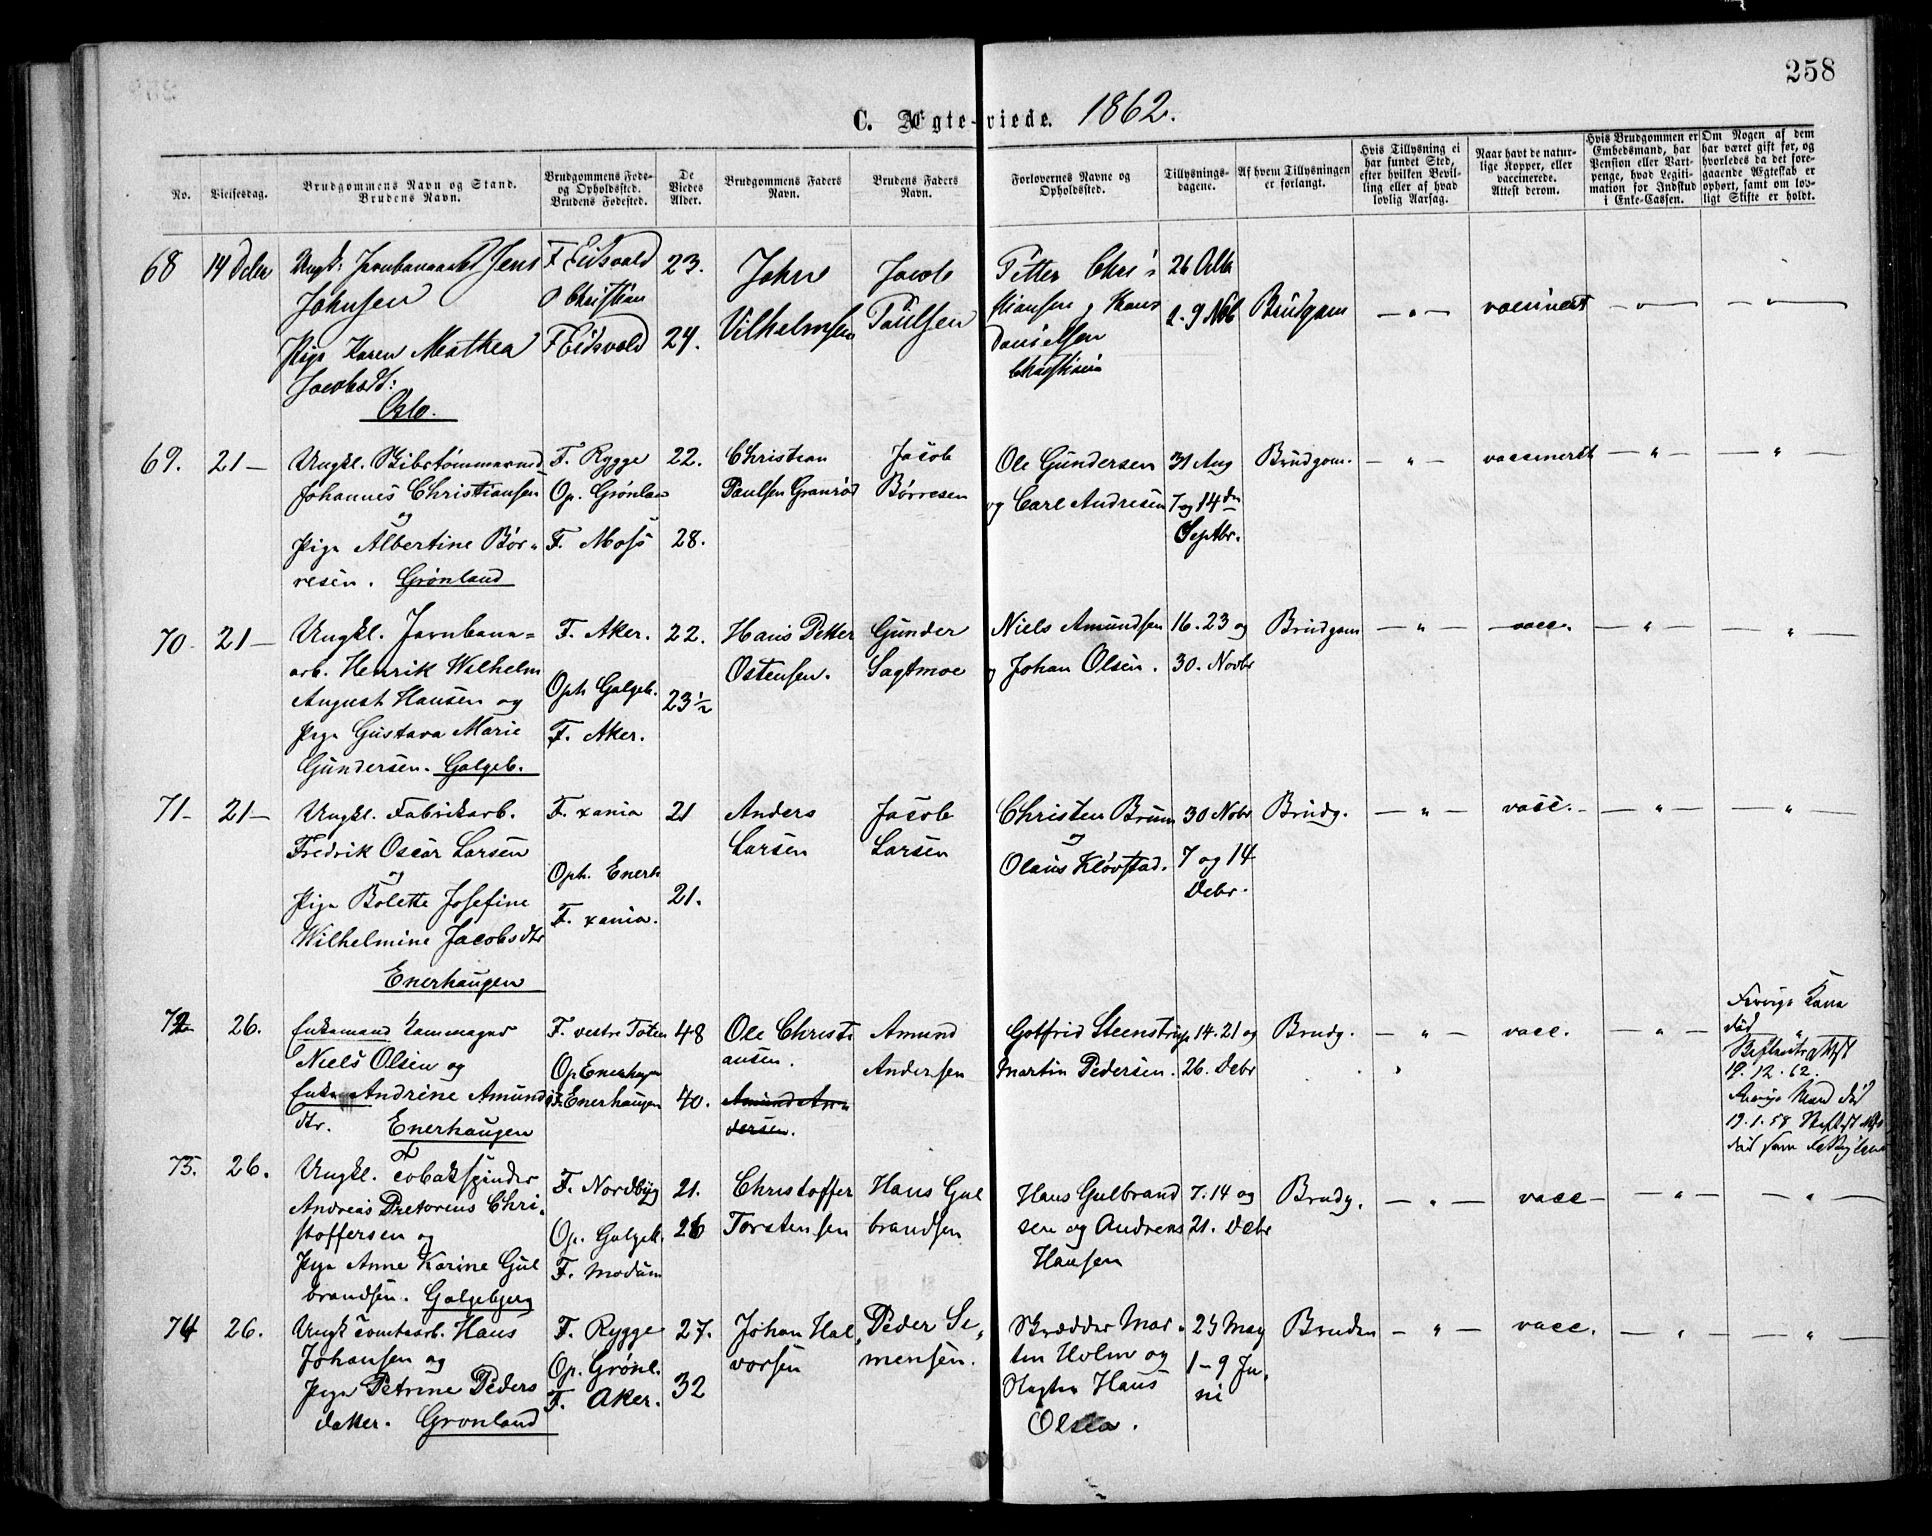 258
C. Ægte-viede. 1862.
No.
Vielsesdag.
Brudgommens Navn og Stand.
Brudens Navn.
Brudgommens Føde-
og Opholdssted.
Brudens Fødested.
De
Viedes
Alder.
Brudgommens Faders
Navn.
Brudens Faders
Navn.
Forlovernes Navne og
Opholdssted.
Tillysnings-
dagene.
Af hvem Tillysningen
er forlangt.
Hvis Tillysning ei
har fundet Sted,
efter hvilken Bevil-
ling eller af hvad
lovlig Aarsag.
Naar havt de natur-
lige Kopper, eller
vaccinerede.
Attest derom.
Hvis Brudgommen er
Embedsmand, har
Pension eller Vart-
penge, hvad Legiti-
mation for Indskud
i Enke-Cassen.
Om Nogen af dem
har været gift før, og
hvorledes da det fore-
gaaende Ægteskab er
ophørt, samt om lov-
ligt Skifte er holdt.
68 14 Decbr
Ungk: Jernbanearb Jens
Johnsen
Pige Karen Mathea
Jacobsdt:
Oslo.
F Eidsvold
O Christian
F Eidsvold
23.
24.
John
Vilhelmsen
Jacob
Paulsen
Petter Chri
stiansen og Hans
Danielsen
Christiania
26 Octb
2-9 Nob
Brudgom
— " —
vaccineret
— " —
— " —
69. 21 —
Ungkl. Skibstømmermd
Johannes Christiansen
og
Pige Albertine Bør-
resen. Grønland
F. Rygge
Op. Grønlan
F. Moss
22.
28.
Christian
Paulsen Granrød
Jacob
Børresen
Ole Gundersen
og Carl Andresen
31 Aug
7 og 14 dn
Septbr.
Brudgom.
— " —
vaccineret
— " —
"
70 21 —
Ungkl. Jernbana-
arb. Henrik Wilhelm
August Hansen og
Pige Gustava Marie
Gundersen. Galgeb.
F. Aker.
Oph Galgeb.
F. Aker.
22.
23½
Hans Petter
Ostensen.
Gunder
Sagtmoe
Niels Amundsen
og Johan Olsen.
16. 23 og
30. Novbr
Brudgom
— " —
vacc.
— " —
"
71 - 21 —
Ungkl. Fabrikarb.
Fredrik Oscar Larsen
og
Pige Bolette Josefine
Wilhelmine Jacobsdtr
Enerhaugen
F. xania
Oph. Enerh
F. xania.
21
21.
Anders
Larsen
Jacob
Larsen
Christen Bruun
og
Olaus Kløvstad.
30 Nobr
7 og 14
Debr.
Brudg.
— " —
vacc.
— " —
— " —
72 26.
Enkemand Kammager
Niels Olsen og
Enke Andrine Amunds
dtr. Enerhaugen
F. vestre Toten
Op Enerhagen
F. Enerhaugen
48
40.
Ole Christi
ansen.
Amund An-
dersen.
Amund
Andersen
Gotfrid Steenstrup
Martin Pedersen.
14. 21 og
26. Debr
Brudg.
— " —
vacc.
— " —
Forrige Kone
død
19. 12. 62.
Forrige Mand død
19. 1. 58
73. 26.
Ungkl. Tobakspinder
Andreas Pretorius Chri-
stoffersen og
Pige Anne Karine Gul
brandsen. Galgebjerg
F. Nordbÿg
Op. Galgeb.
F. Modum
21.
26
Christoffer
Torstensen
Hans Gul
brandsen
Hans Gulbrand
sen og Andreas
Hansen
7. 14 og
21. Debr
Brudg.
— " —
vacc
— " —
— " —
74 26.
Ungk Tomtearb. Hans
Johansen og
Pige Petrine Peders
datter. Grønland
F. Rygge
Op. Grønl.
F. Aker.
27.
32
Johan Hal
vorsen
Peder Si-
mensen.
Skrædder Mar-
tin Holm og
Hans
Olsen.
25 May
1 - 9 Ju-
ni
Bruden
— " —
vacc.
— " —
— " —